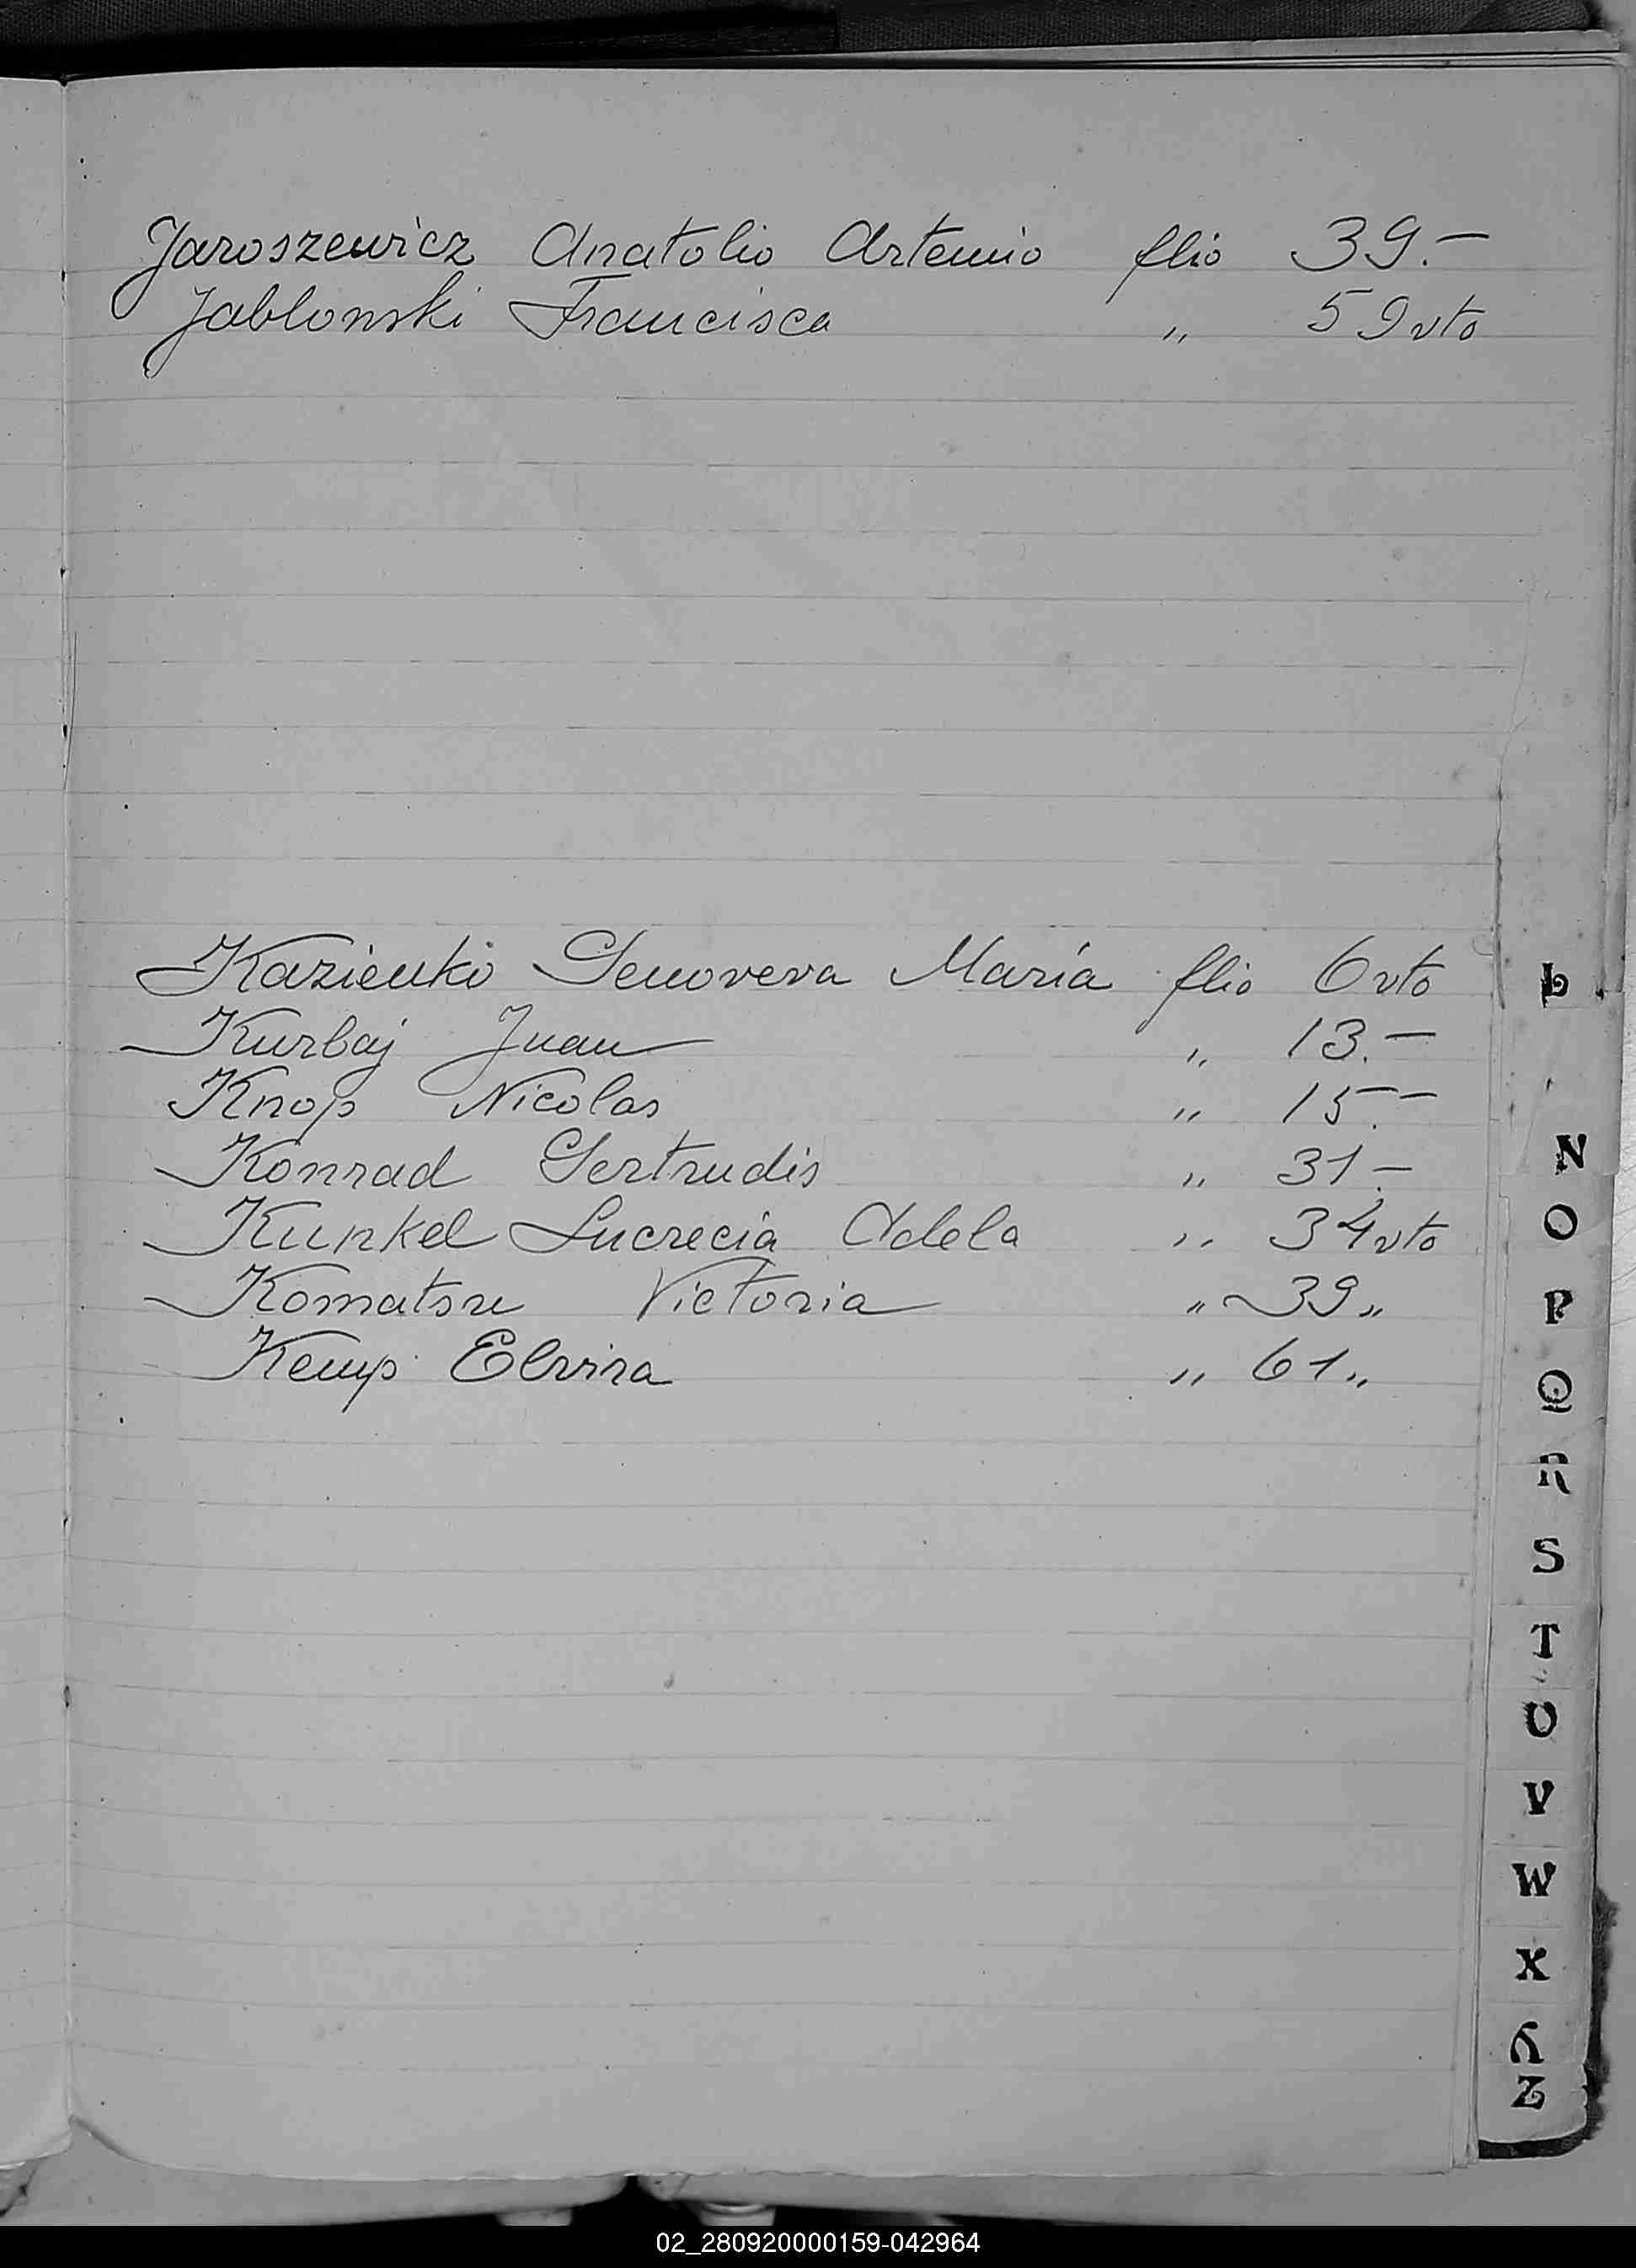 Jaroszewicz Anatolio Artemio flio 39.-
Jablonski Francisca " 59 vto
Kazienko Genoveva María flio 6 vto
L
Kurbaj Juan " 13.-
Knop Nicolas " 15.-
N
Konrad Gertrudis " 31.-
O
Kunkel Lucrecia Adela " 34 vto
Victoria " 39 "
P
Kemp Elvira " 61 "
Q
R
S
T
U
V
W
X
Y
Z
02_280920000159-042964